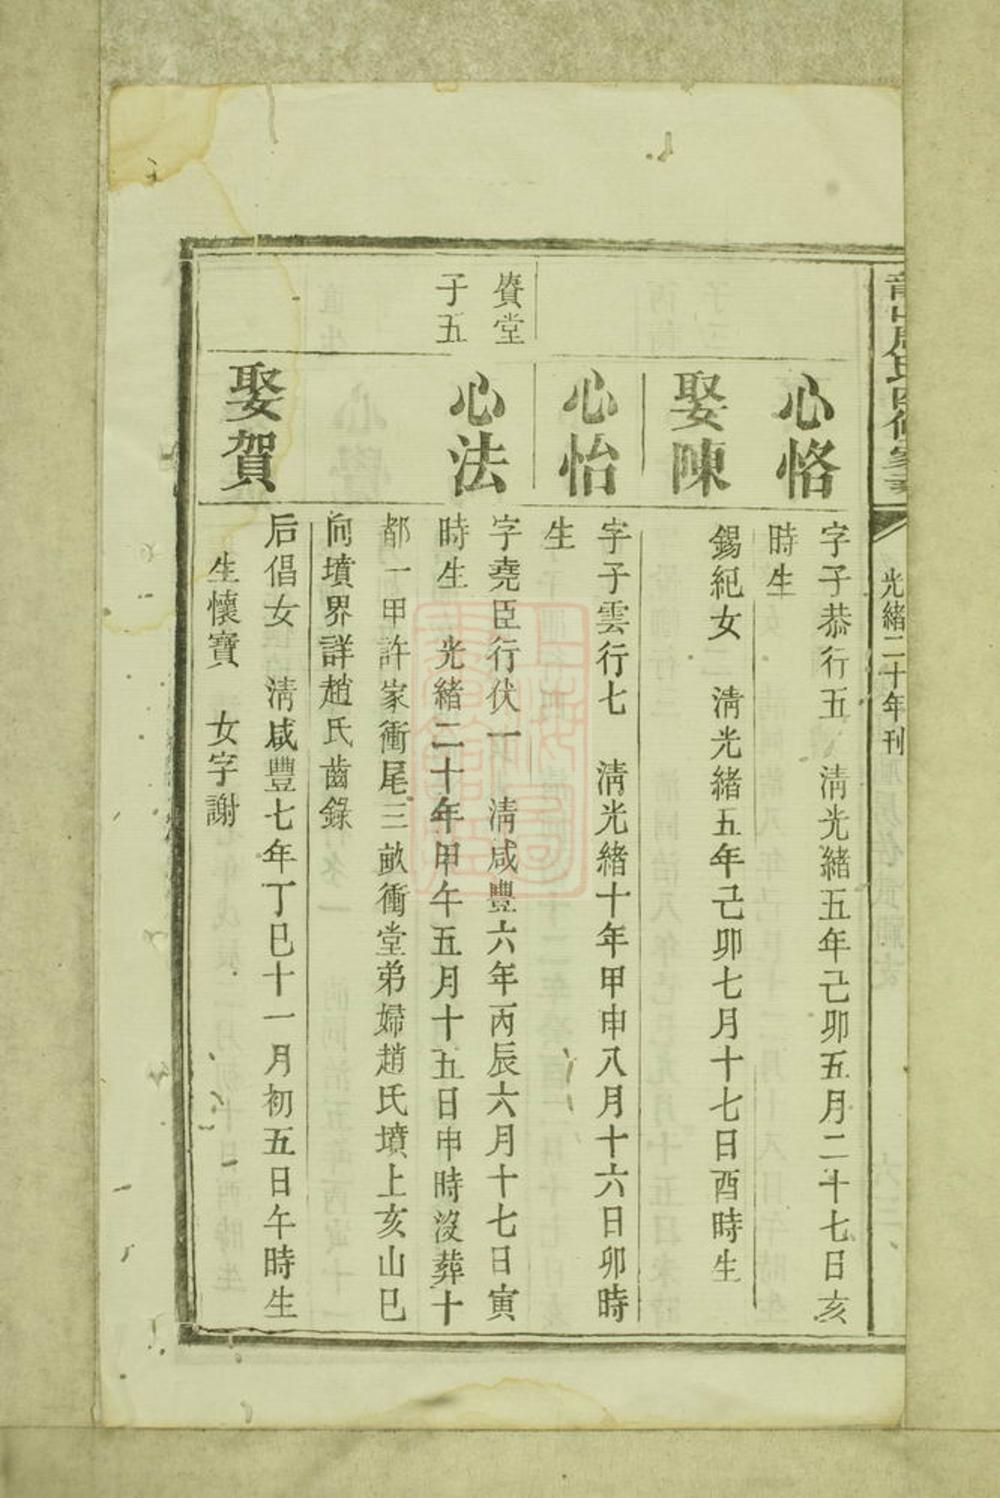 光緒二十年刊
心恪
字子恭行五 淸光緒五年己卯五月二十七日亥
時生
娶陳
錫紀女 淸光緒五年己卯七月十七日酉時生
心怡
字子雲行七 淸光緒十年甲申八月十六日卯時
生
賡堂
子五
心法
字堯臣行伏一 淸咸豐六年丙辰六月十七日寅
時生 光緒二十年甲午五月十五日申時沒葬十
都一甲許家衝尾三畝衝堂弟婦趙氏墳上亥山巳
向墳界詳趙氏齒錄
娶賀
后倡女 淸咸豐七年丁巳十一月初五日午時生
生懷寶 女字謝